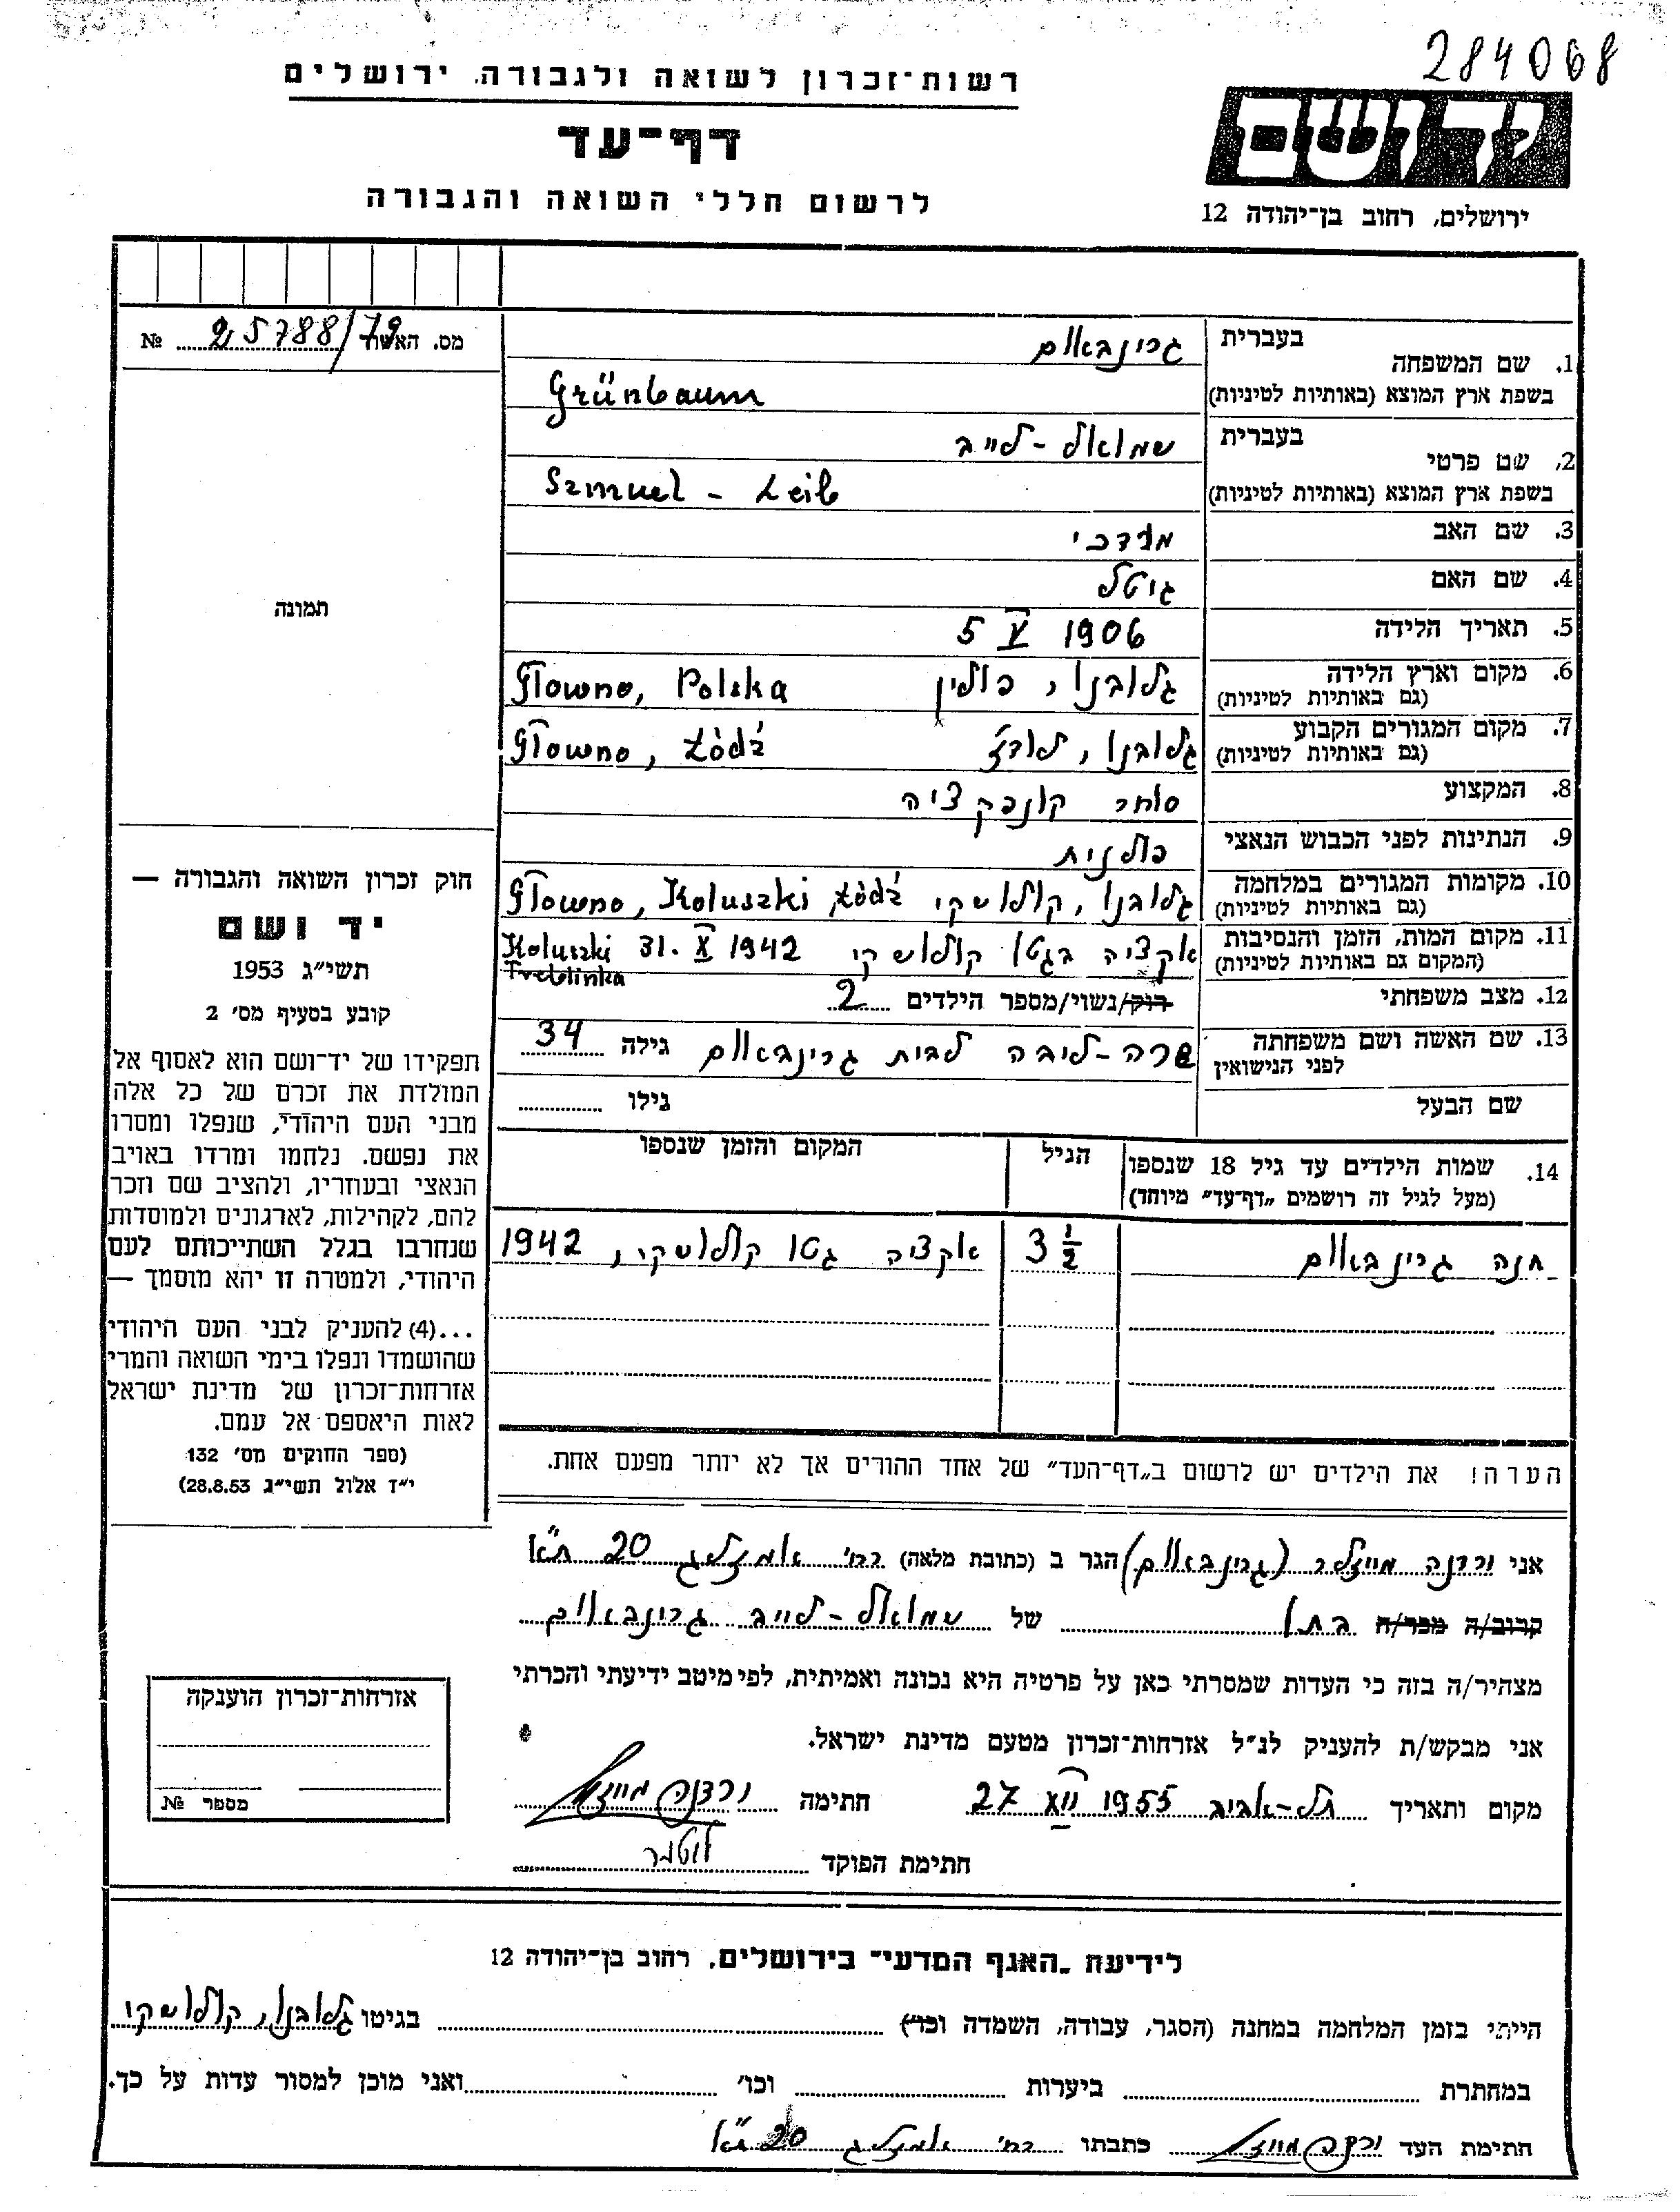 284068
רשות־זכרון לשואה ולגבורה, ירושלים
דף־עד
לרשום חללי השואה והגבורה
יד ושם
ירושלים, רחוב בן־יהודה 12
מס. האשור 25788/79 №
1. שם המשפחה בעברית גרינבאום
בשפת ארץ המוצא (באותיות לטיניות) Grünbaum
2. שם פרטי בעברית שמואל-לייב
בשפת ארץ המוצא (באותיות לטיניות) Szmuel - Leib
3. שם האב מרדכי
4. שם האם גיטל
5. תאריך הלידה 5 V 1906
6. מקום וארץ הלידה גלובנו, פולין Głowno, Polska
(גם באותיות לטיניות)
7. מקום המגורים הקבוע גלובנו, לודז' Głowno, Łódź
(גם באותיות לטיניות)
8. המקצוע סוחר קונפקציה
9. הנתינות לפני הכבוש הנאצי פולנית
10. מקומות המגורים במלחמה גלובנו, קולושקי Głowno, Koluszki Łódź
(גם באותיות לטיניות)
11. מקום המות, הזמן והנסיבות אקציה בגטו קולושקי Koluszki 31. X 1942
(המקום גם באותיות לטיניות) Treblinka
12. מצב משפחתי רוק/נשוי/מספר הילדים 2
13. שם האשה ושם משפחתה שרה-ליבה לבית גרינבאום גילה 34
לפני הנישואין
שם הבעל גילו
14. שמות הילדים עד גיל 18 שנספו הגיל המקום והזמן שנספו
(מעל לגיל זה רושמים „דף־עד" מיוחד)
חנה גרינבאום 3 1/2 אקציה גטו קולושקי, 1942
הערה! את הילדים יש לרשום ב„דף־העד" של אחד ההורים אך לא יותר מפעם אחת.
תמונה
חוק זכרון השואה והגבורה —
יד ושם
תשי״ג 1953
קובע בסעיף מס׳ 2
תפקידו של יד־ושם הוא לאסוף אל
המולדת את זכרם של כל אלה
מבני העם היהודי, שנפלו ומסרו
את נפשם. נלחמו ומרדו באויב
הנאצי ובעוזריו, ולהציב שם וזכר
להם, לקהילות, לארגונים ולמוסדות
שנחרבו בגלל השתייכותם לעם
היהודי, ולמטרה זו יהא מוסמך —
...(4) להעניק לבני העם היהודי
שהושמדו ונפלו בימי השואה והמרי
אזרחות־זכרון של מדינת ישראל
לאות היאספם אל עמם.
(ספר החוקים מס׳ 132
י״ז אלול תשי״ג 28.8.53)
אני ורדנה מייזלר (גרינבאום) הגר ב (כתובת מלאה) רח' אמזלג 20 ת"א
קרוב/ה מכר/ה בתו של שמואל-לייב גרינבאום
מצהיר/ה בזה כי העדות שמסרתי כאן על פרטיה היא נכונה ואמיתית, לפי מיטב ידיעתי והכרתי
אני מבקש/ת להעניק לנ״ל אזרחות־זכרון מטעם מדינת ישראל.
מקום ותאריך תל-אביב 27 XII 1955 חתימה
חתימת הפוקד
אזרחות־זכרון הוענקה
מספר №
לידיעת „האגף המדעי" בירושלים, רחוב בן־יהודה 12
הייתי בזמן המלחמה במחנה (הסגר, עבודה, השמדה וכו׳) בגיטו גלובנו, קולושקי
במחתרת ביערות וכו׳ ואני מוכן למסור עדות על כך.
חתימת העד כתבתו רח' אמזלג 20 ת"א